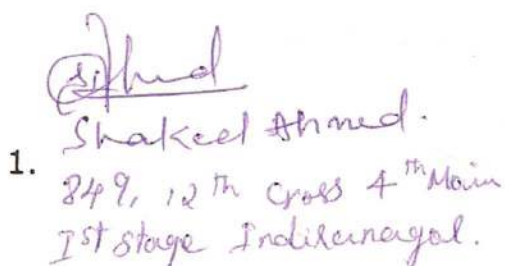 Shakeel Ahmed.
1.
849, 12th Cross 4th Main
Ist Stage Indiranagar.